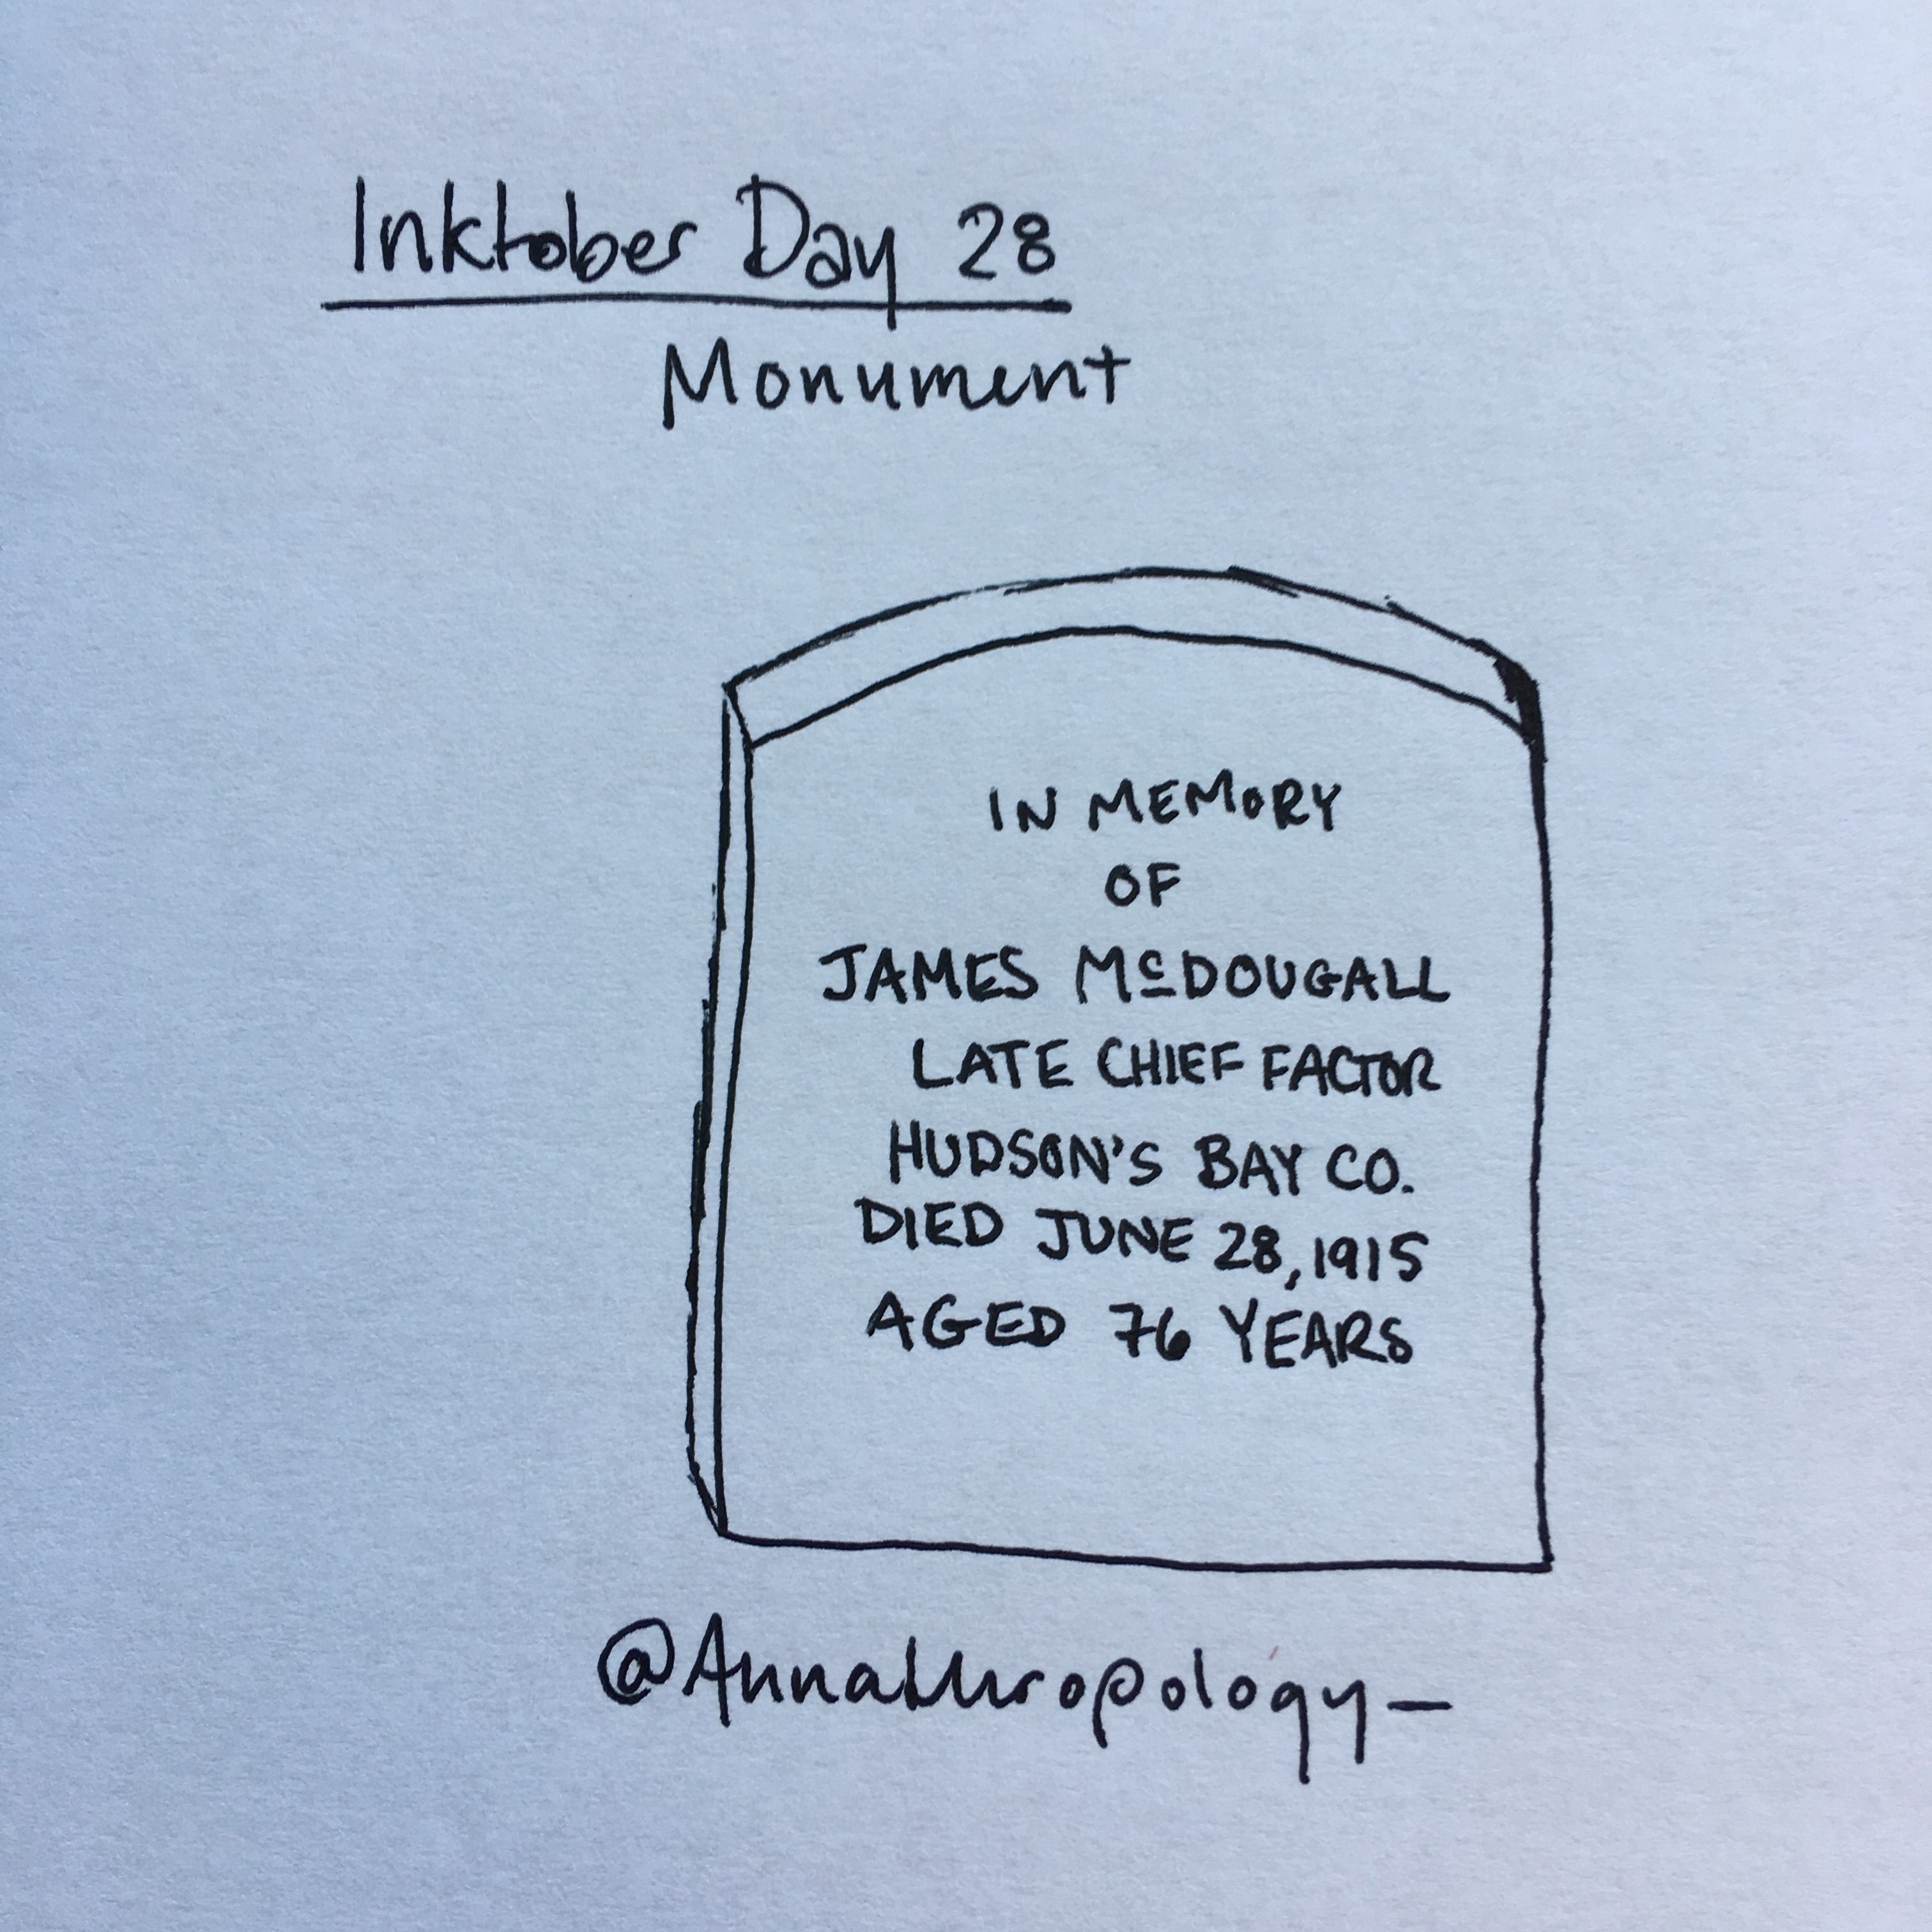 Inktober Day 28
Monument
IN MEMORY
OF
JAMES McDOUGALL
LATE CHIEF FACTOR
HUDSON'S BAY CO.
DIED JUNE 28, 1915
AGED 76 YEARS
@Annathropology_